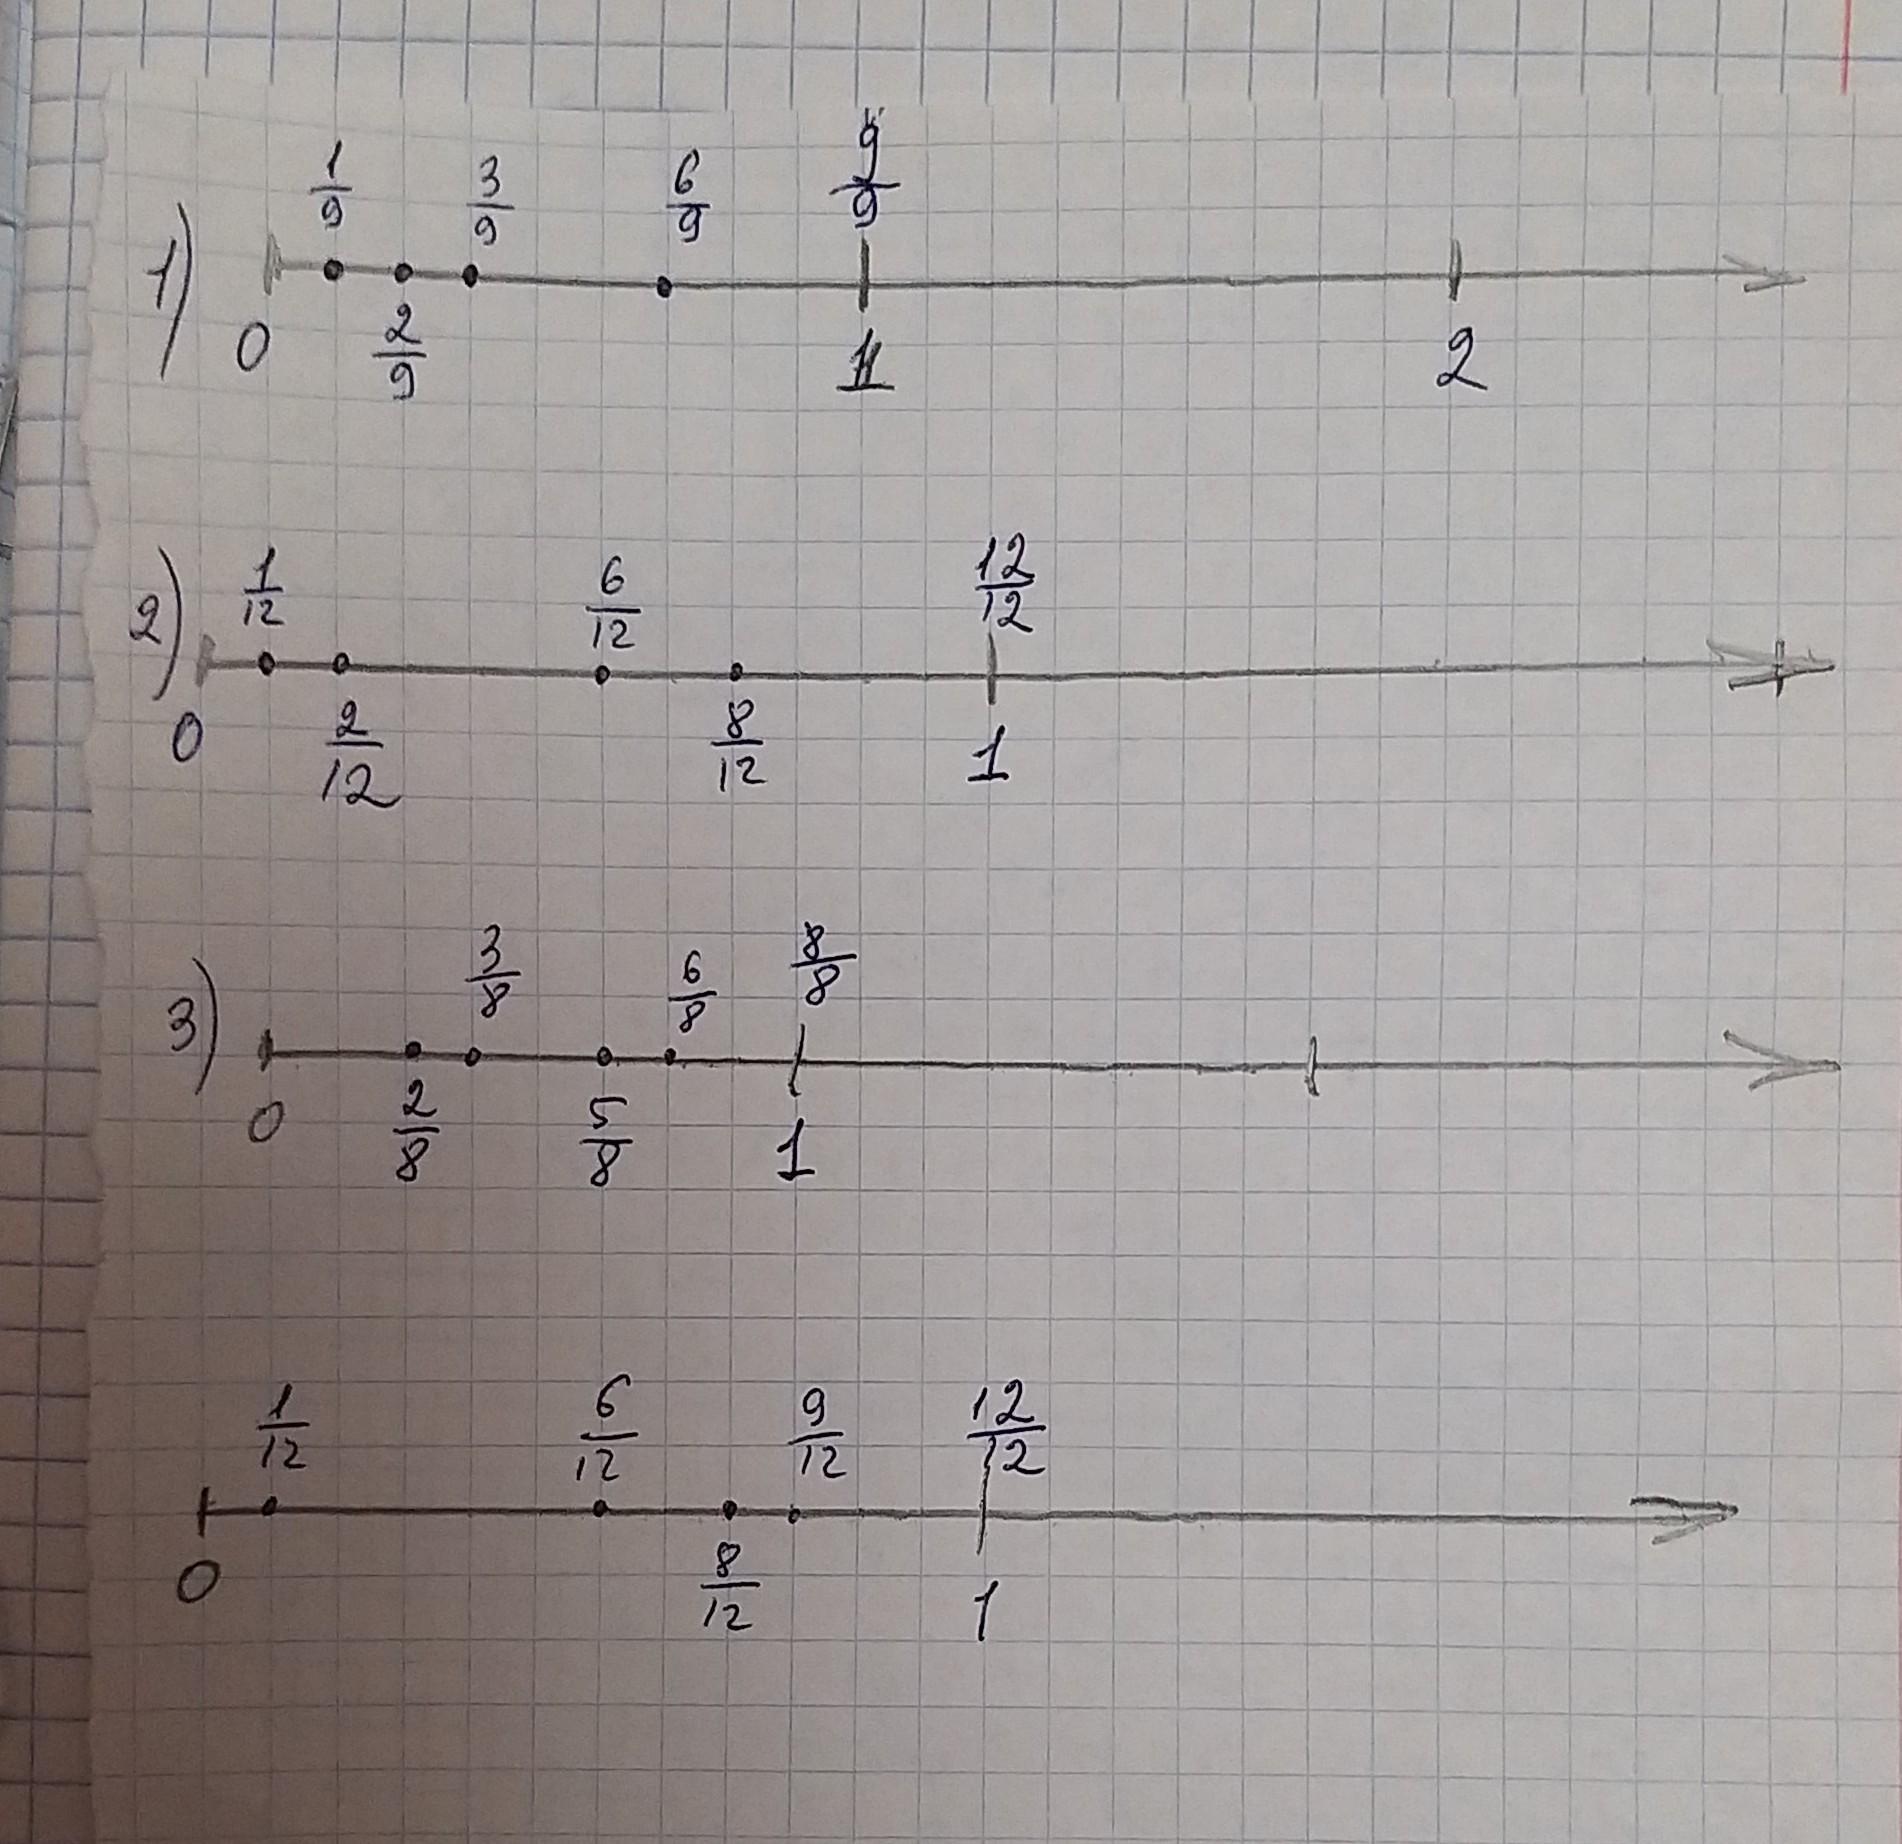 1) 1/9 3/9 6/9 9/9
0 2/9 1 2
2) 1/12 6/12 12/12
0 2/12 8/12 1
3) 3/8 6/8 8/8
0 2/8 5/8 1
1/12 6/12 9/12 12/12
0 8/12 1